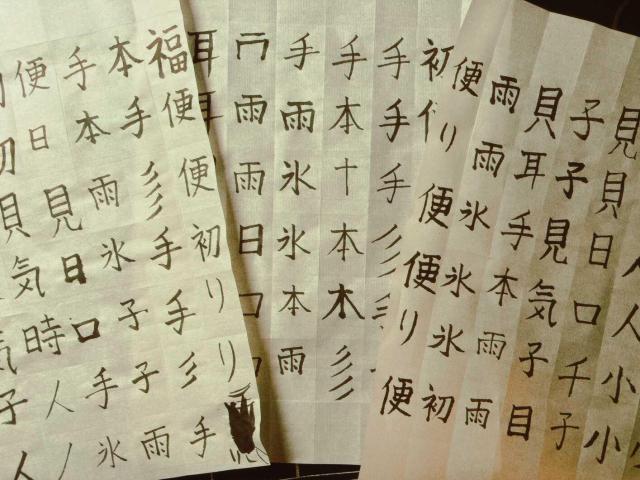 人人小小
見貝日口千子
子子見気子目
貝耳手本雨雨
雨雨氷氷氷初
便り便便り便
初
手手手彡
手本十本木彡
手雨氷氷本雨
雨雨日
耳耳
福便便初りり
本手彡手手彡手
手本雨氷子子雨
便日見日口手氷
初貝気時人ノ
気子人